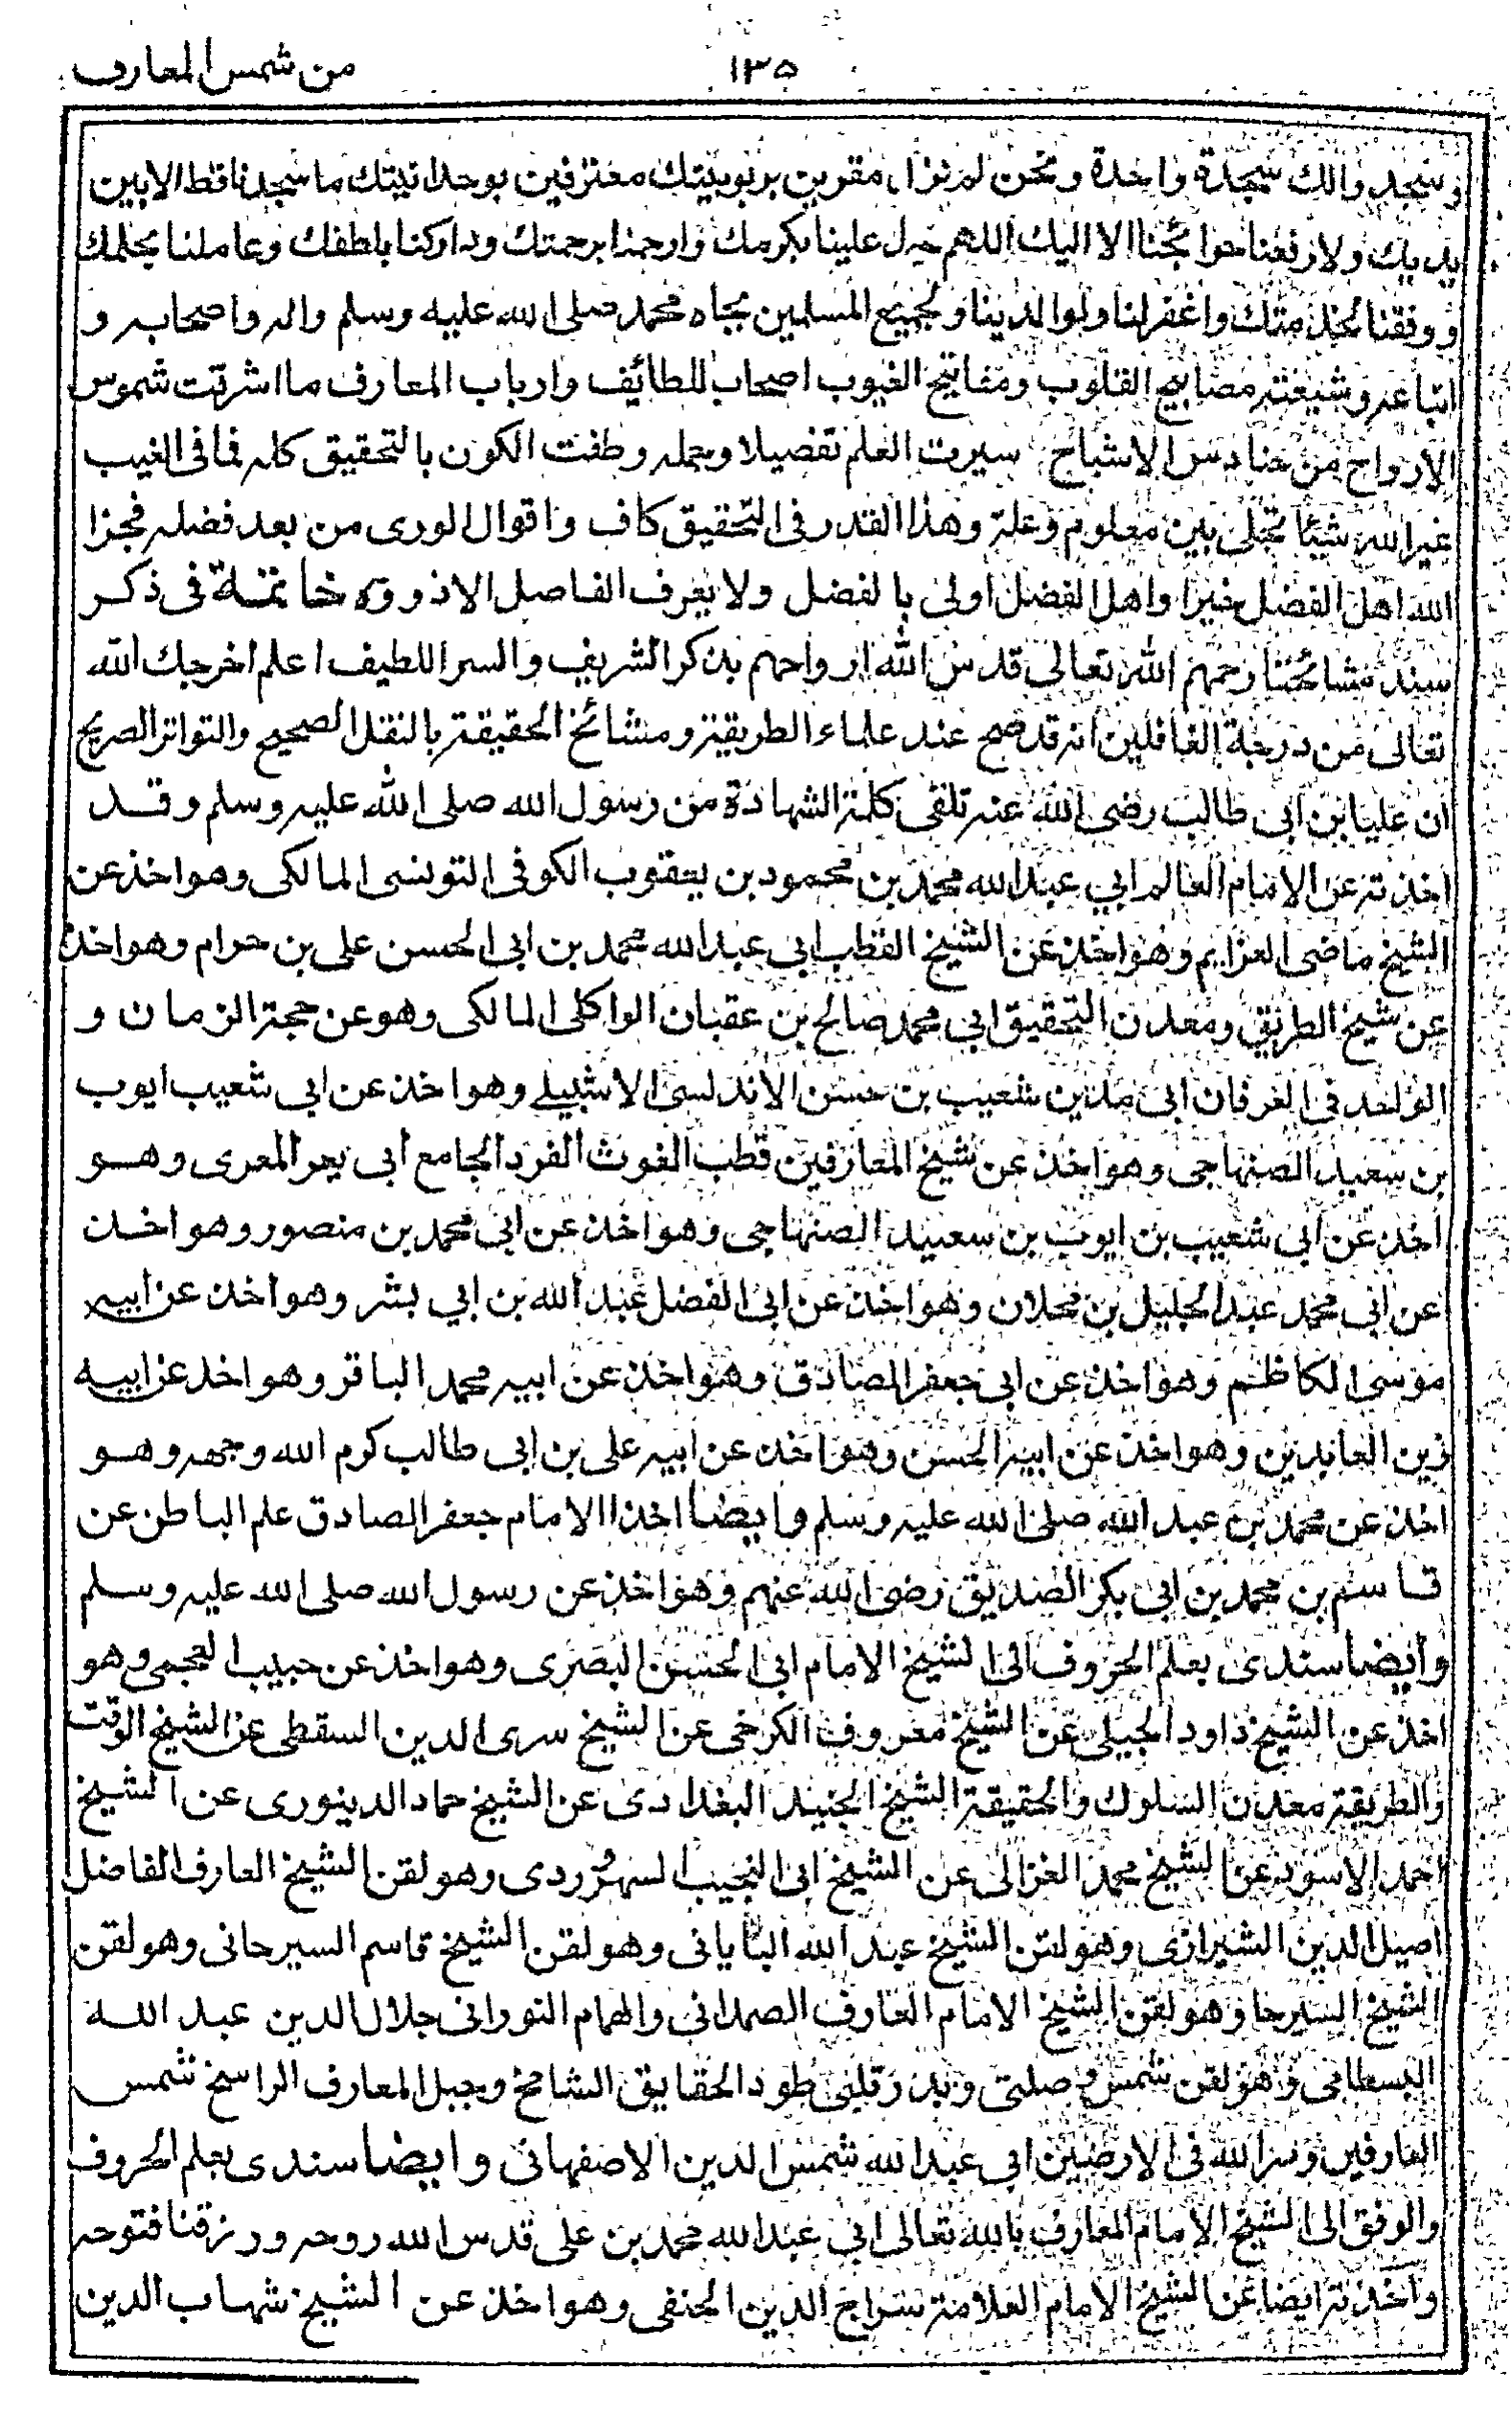 ١٣٥ من شمس المعارف
ونسجد والك سجدة واحدة ونحن لم نزال مقرين بربوبيتك معترفين بوحدانيتك ما سجدنا قط الا بين
يديك ولا رفعنا حوائجنا الا اليك اللهم علينا بكرمك وارحمنا برحمتك وداركنا بلطفك وعاملنا بحلمك
ووفقنا لخدمتك واغفر لنا ولوالدينا ولجميع المسلمين بجاه محمد صلى الله عليه وسلم واله واصحابه و
اتباعه وشيعته مصابيح القلوب ومفاتيح الغيوب اصحاب اللطائف وارباب المعارف ما اشرقت شموس
الارواح من حنادس الاشباح سيرت العلم تفصيلا وجمله وطفت الكون بالتحقيق كله فما فى الغيب
غير الله شيئا تجلى بين معلوم وعلة وهذا القدر فى التحقيق كاف واقوال الورى من بعد فضله فجزا
الله اهل الفضل خيرا واهل الفضل اولى بالفضل ولا يعرف الفاصل الا ذووه خاتمة فى ذكر
سند مشائخنا رحمهم الله تعالى قدس الله ارواحهم بذكر الشريف والسر اللطيف اعلم اخرجك الله
تعالى من درجة الغافلين انه قد صح عند علماء الطريقة ومشائخ الحقيقة بالنقل الصحيح والتواتر الصريح
ان عليا بن ابى طالب رضى الله عنه تلقى كلمة الشهادة من رسول الله صلى الله عليه وسلم وقد
اخذته عن الامام العالم ابي عبد الله محمد بن محمود بن يعقوب الكوفى التونسى المالكى وهو اخذ عن
الشيخ ماضى العزايم وهو اخذ عن الشيخ القطب ابى عبد الله محمد بن ابى الحسن على بن حرام وهو اخذ
عن شيخ الطريق ومعدن التحقيق ابي محمد صالح بن عقبان الواكلى المالكى وهو عن حجة الزمان و
الواحد فى العرفان ابى مدين شعيب بن حسن الاندلسى الاشبيلے وهو اخذ عن ابى شعيب ايوب
بن سعيد الصنهاجى وهو اخذ عن شيخ المعارفين قطب الغوث الفرد الجامع أبى يعر المعرى وهو
اخذ عن ابى شعيب بن ايوب بن سعيد الصنهاجى وهو اخذ عن ابى محمد بن منصور وهو اخذ
عن ابى محمد عبد الجليل بن محلان وهو اخذ عن ابى الفضل عبد الله بن ابي بشر وهو اخذ عن ابيه
موسى الكاظم وهو اخذ عن ابى جعفر الصادق وهو اخذ عن ابيه محمد الباقر وهو اخذ عن ابيه
زين العابدين وهو اخذ عن ابيه الحسن وهو اخذ عن ابيه على بن ابى طالب كرم الله وجهه وهو
اخذ عن محمد بن عبد الله صلى الله عليه وسلم وايضا اخذ الامام جعفر الصادق علم الباطن عن
قاسم بن محمد بن ابى بكر الصديق رضى الله عنهم وهو اخذ عن رسول الله صلى الله عليه وسلم
وايضا سندى بعلم الحروف الى الشيخ الامام ابى الحسن البصرى وهو اخذ عن حبيب العجمى وهو
اخذ عن الشيخ داود الجبيلى عن الشيخ معروف الكرخى عن الشيخ سرى الدين السقطى عن الشيخ الوقت
والطريقة معدن السلوك والحقيقة الشيخ الجنيد البغدادى عن الشيخ حماد الدينورى عن الشيخ
احمد الاسود عن الشيخ محمد الغزالى عن الشيخ ابى النجيب السهروردى وهو لقن الشيخ العارف الفاضل
اصيل الدين الشيرازى وهو لقن الشيخ عبد الله البايانى وهو لقن الشيخ قاسم السيرحانى وهو لقن
الشيخ السيرحا وهو لقن الشيخ الامام العارف الصمدانى والهمام النورانى جلال الدين عبد الله
البسطامى وهو لقن شمس وصلتى وبدر قلبى طود الحقايق الشامخ وجبل المعارف الراسخ شمس
العارفين وسر الله فى الارضين ابى عبد الله شمس الدين الاصفهانى وايضا سندى بعلم الحروف
والوفق الى الشيخ الامام المعارف بالله تعالى ابى عبد الله محمد بن على قدس الله روحه ورزقنا فتوحه
واخذته ايضا عن الشيخ الامام العلامة سراج الدين الحنفى وهو اخذ عن الشيخ شهاب الدين